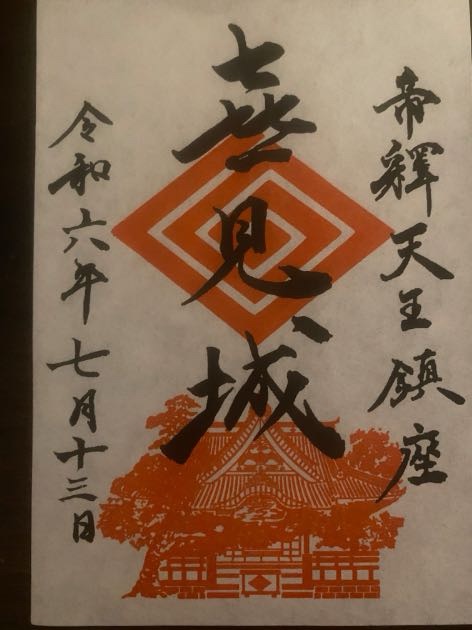 帝釋天王鎮座
㐂見城
令和六年七月十三日